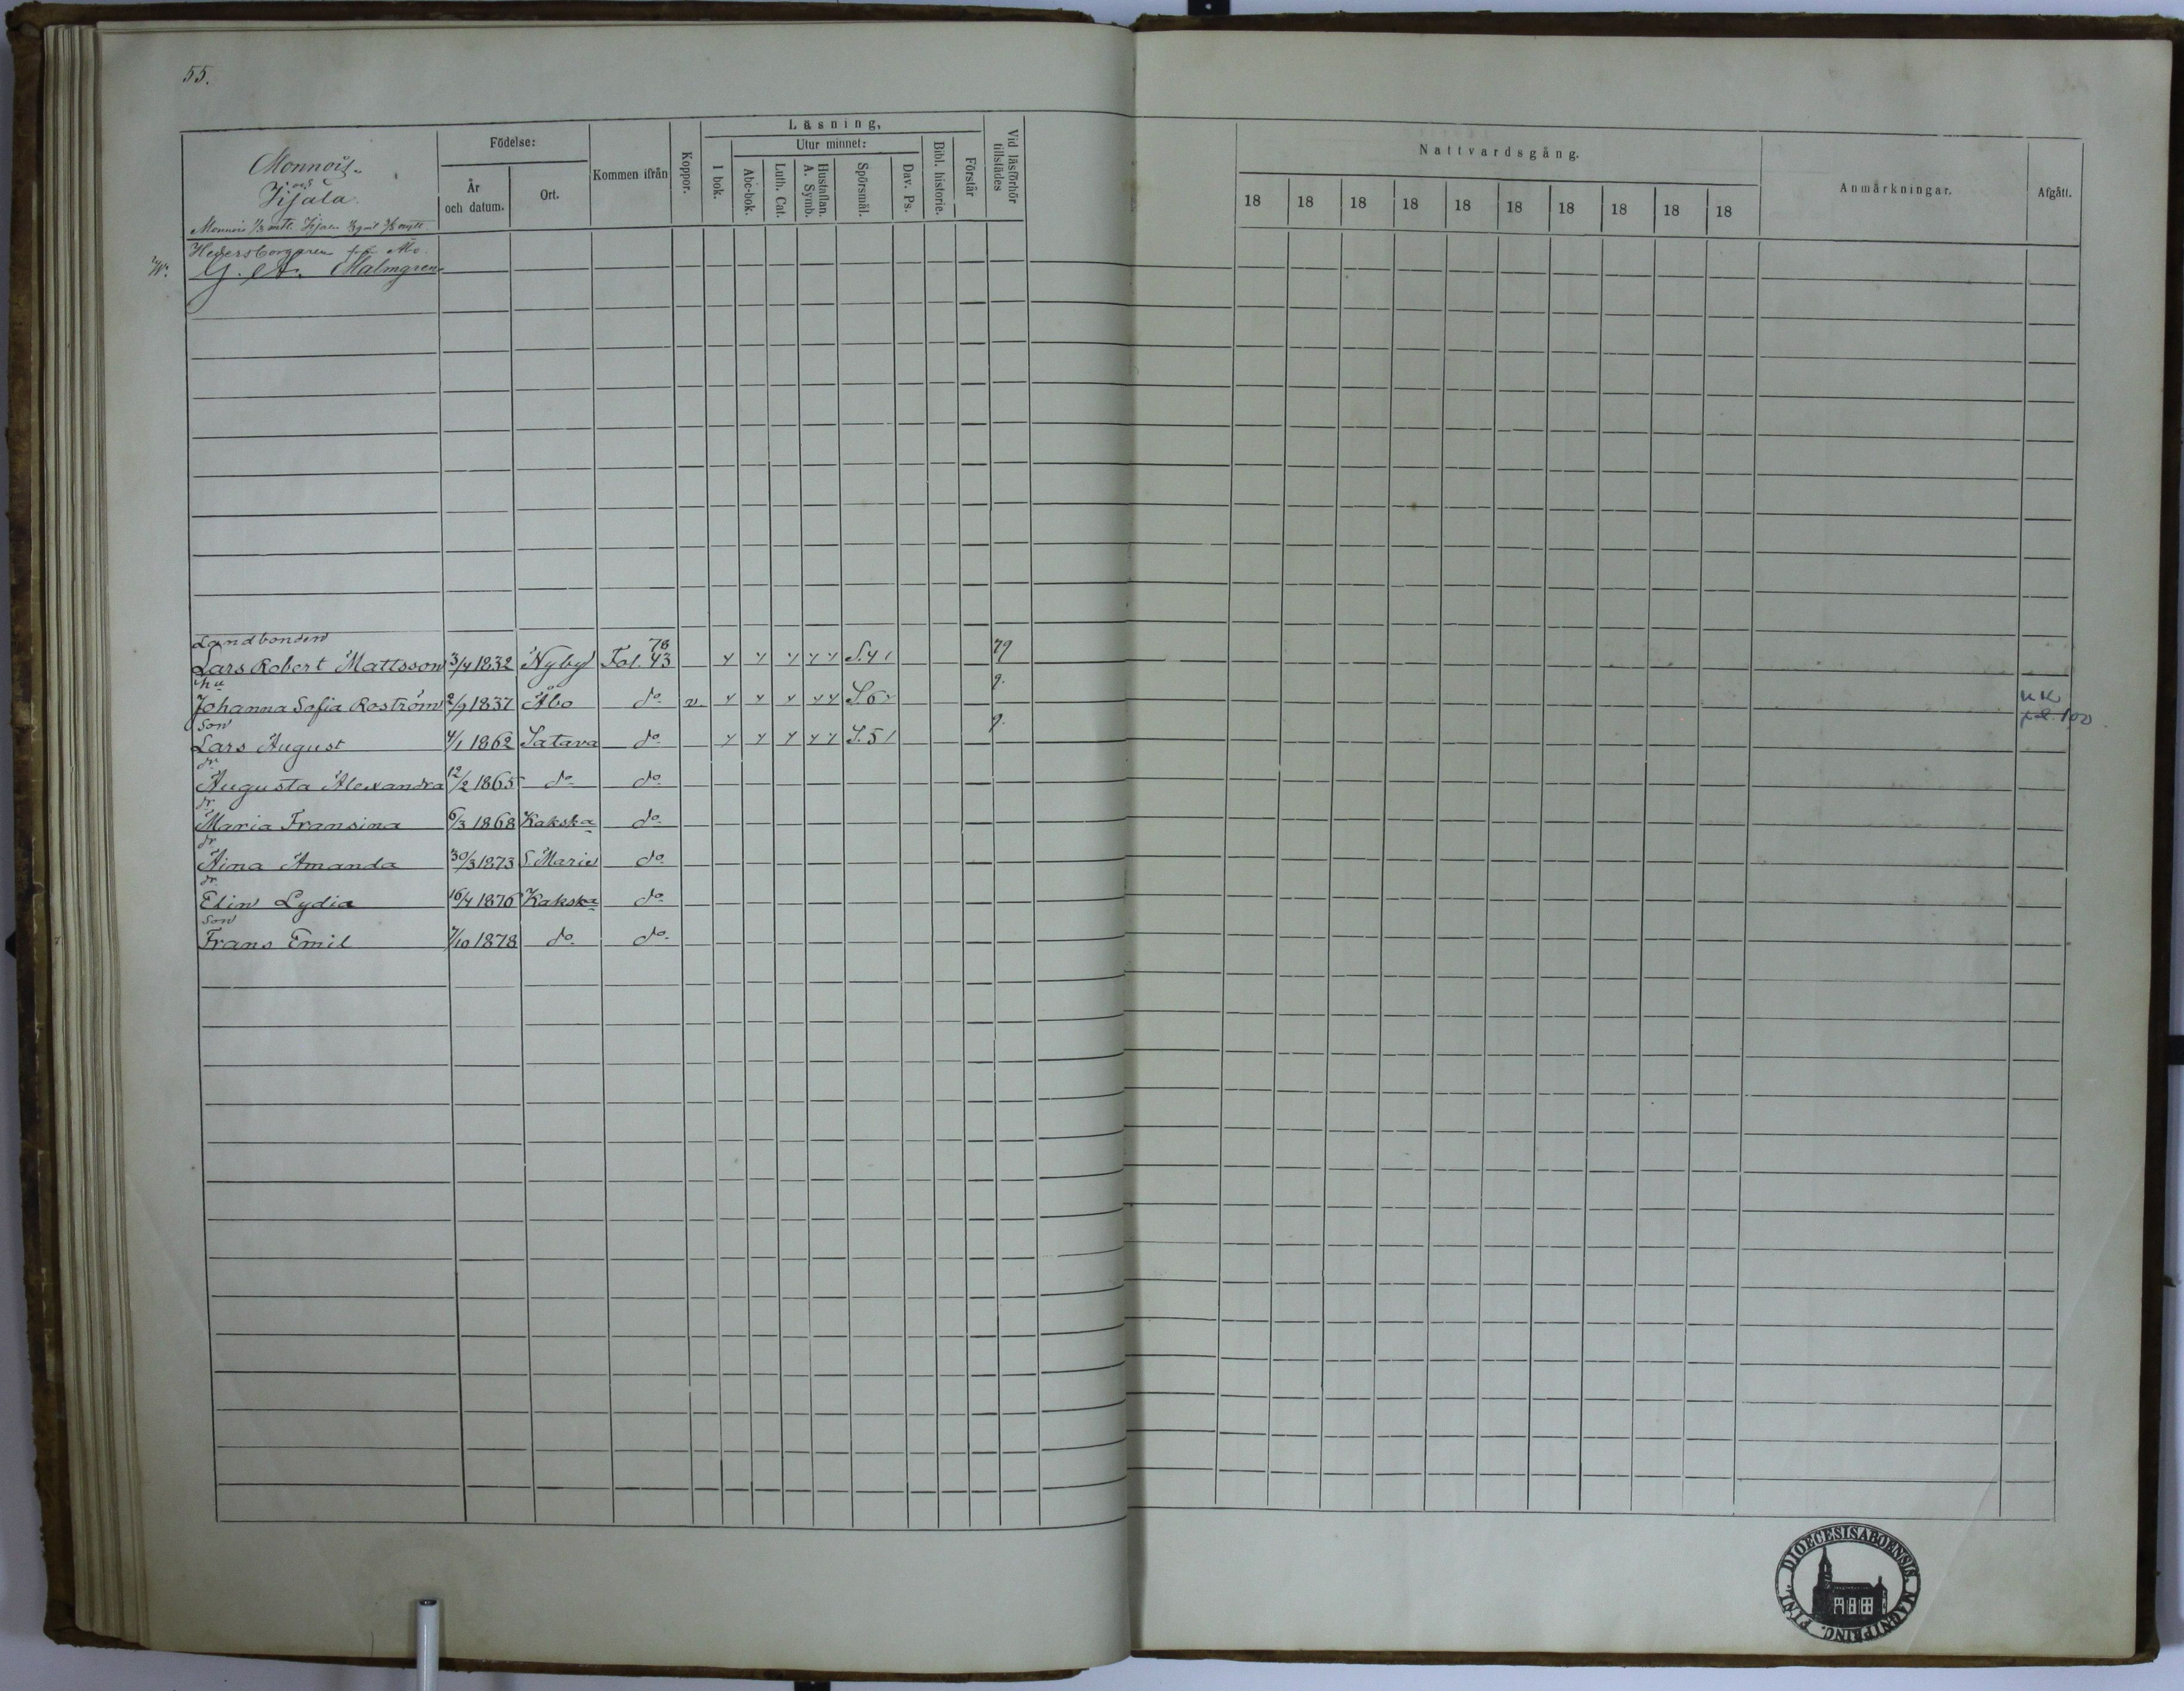 55.
Läsning,
Födelse:
Utur minnet:
Monnois
och
Kijala
År och datum.
Ort.
Kommen ifrån
Koppor.
I bok.
Abc-bok.
Luth. Cat.
Hustaflan. A. Symb.
Spörsmål.
Dav. Ps.
Bibl. historie.
Förstår
Vid läsförhör tillstädes
Nattvardsgång.
Anmärkningar.
Afgått.
18 18 18 18 18 18 18 18 18 18
Monnois 1/3 mtl. Kijala
G. A. Malmgren
Landbonden 78 79
Lars Robert Mattsson 3/4 1832 Nyby Fol. 43 S. 4
hu 9.
Johanna Sofia Roström 2/9 1837 Åbo do v. S. 6
Son 9.
Lars August 4/1 1862 Satava do S. 5
dr
Augusta Alexandra 12/2 1865 do do
dr
Maria Fransina 6/3 1868 Kakska do
dr
Aina Amanda 30/3 1873 S. Marie do
dr
Elin Lydia 16/4 1876 Kakska do
Son
Frans Emil 7/10 1878 do do
n k
pol. 100
DIOECESIS ABOENSIS. MAGNI PRINC. FINL.